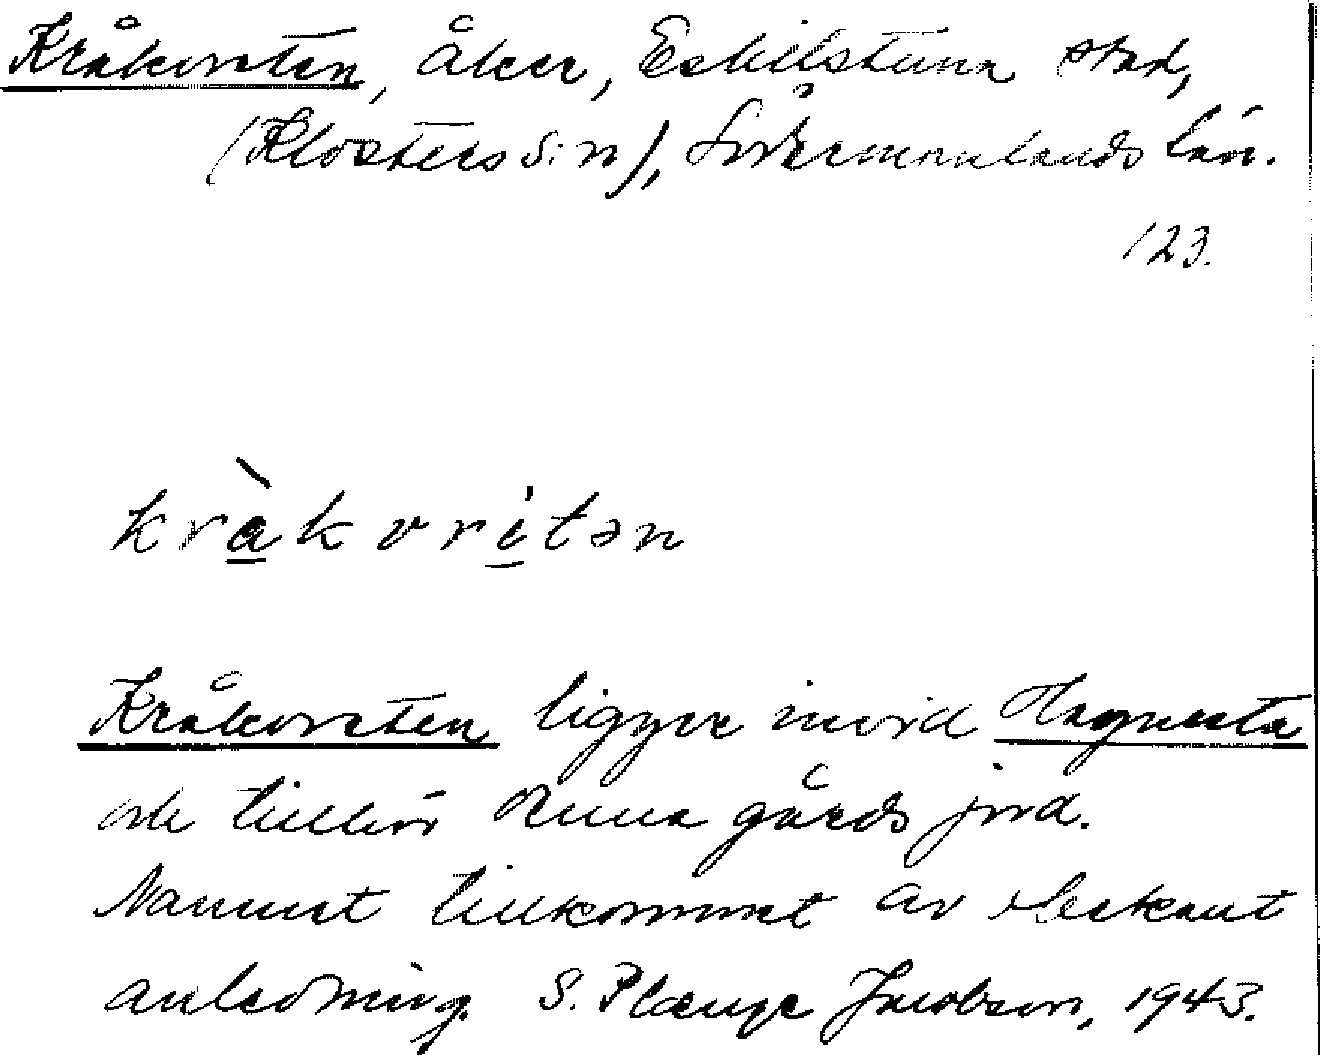 Kråkvreten, åker, Eskilstuna stad,
(Klosters s:n), Södermanlands län.
123.
kràkvritən
Kråkvreten ligger invid Hagnesta
och tillhör Runa gårds jord.
Namnet tillkommet av obekant
anledning. S. Plænge Jacobson, 1943.